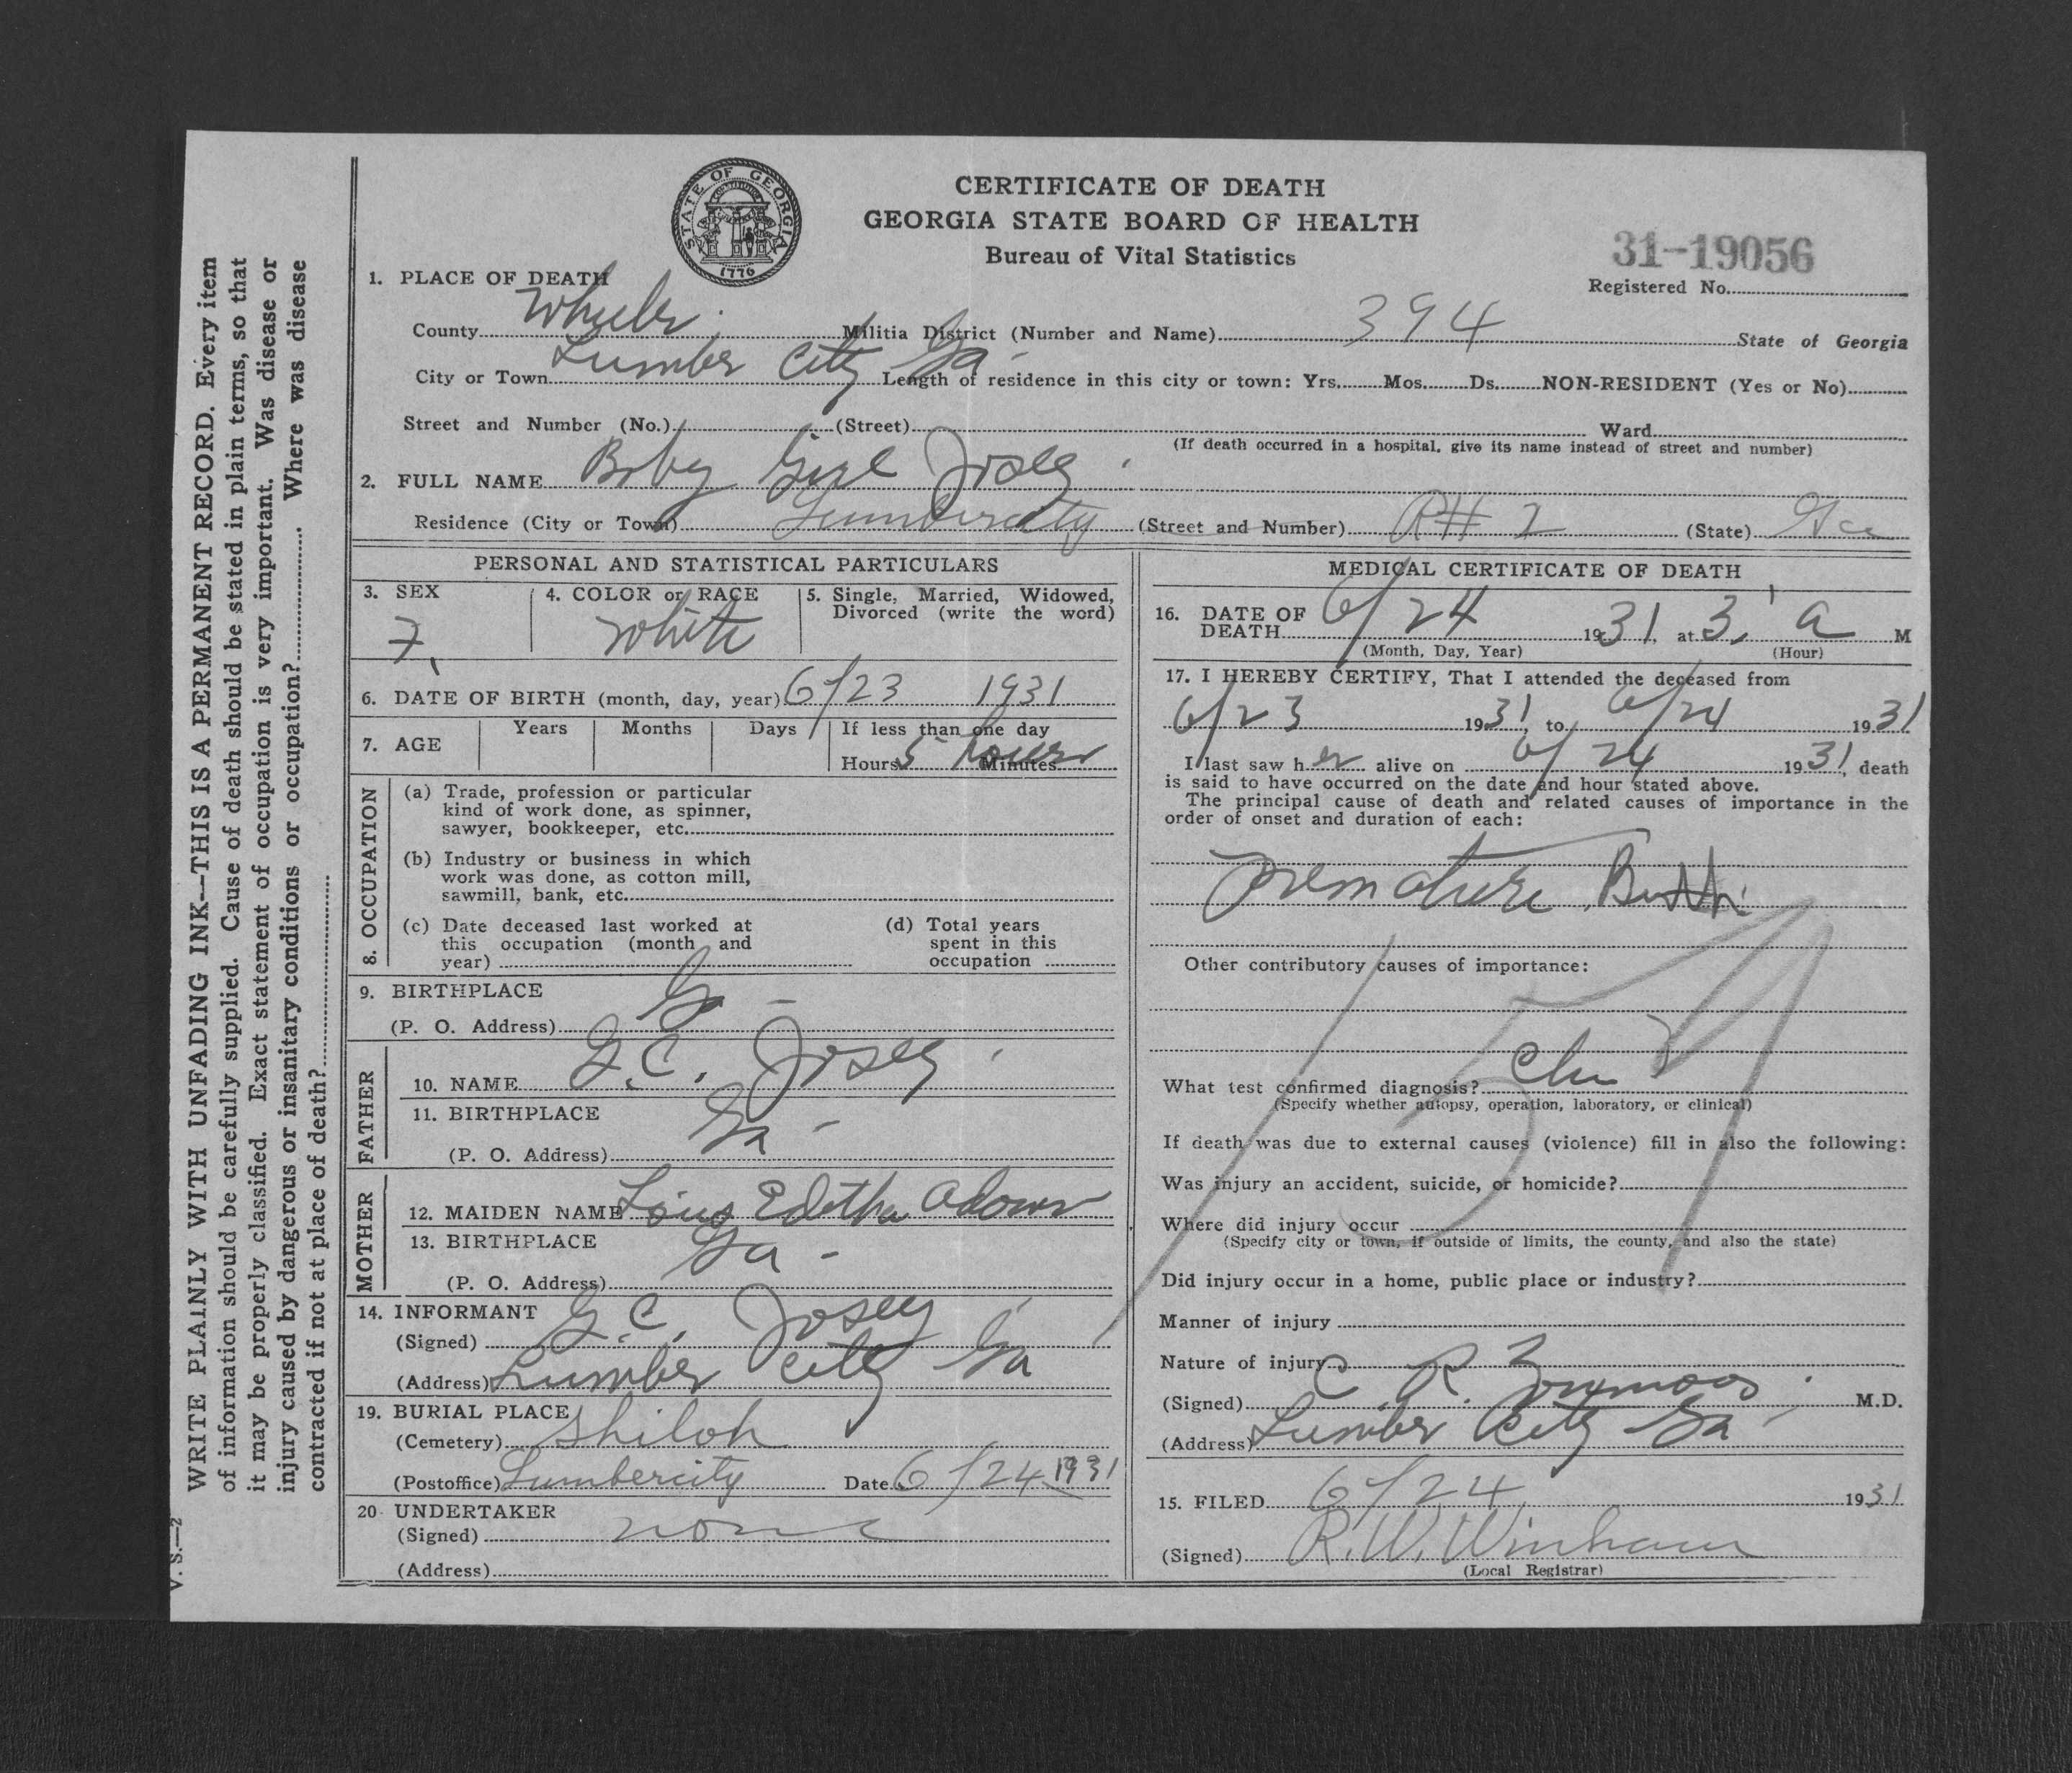 STATE OF GEORGIA
CONSTITUTION
1776
CERTIFICATE OF DEATH
GEORGIA STATE BOARD OF HEALTH
Bureau of Vital Statistics
31-19056
Registered No.
1. PLACE OF DEATH
County Wheeler Militia District (Number and Name) 394 State of Georgia
City or Town Lumber City Ga Length of residence in this city or town: Yrs. Mos. Ds. NON-RESIDENT (Yes or No)
Street and Number (No.) (Street) Ward
(If death occurred in a hospital, give its name instead of street and number)
2. FULL NAME Baby Girl Josey
Residence (City or Town) Lumbercity (Street and Number) R# 2 (State) Ga
PERSONAL AND STATISTICAL PARTICULARS
3. SEX 4. COLOR or RACE 5. Single, Married, Widowed,
Divorced (write the word)
F White
6. DATE OF BIRTH (month, day, year) 6/23 1931
7. AGE Years Months Days If less than one day
Hours 5 hours Minutes
8. OCCUPATION
(a) Trade, profession or particular
kind of work done, as spinner,
sawyer, bookkeeper, etc.
(b) Industry or business in which
work was done, as cotton mill,
sawmill, bank, etc.
(c) Date deceased last worked at
this occupation (month and
year)
(d) Total years
spent in this
occupation
9. BIRTHPLACE Ga
(P. O. Address)
FATHER
10. NAME G.C. Josey
11. BIRTHPLACE Ga
(P. O. Address)
MOTHER
12. MAIDEN NAME Lois Editha Adams
13. BIRTHPLACE Ga
(P. O. Address)
14. INFORMANT
(Signed) G.C. Josey
(Address) Lumber City Ga
19. BURIAL PLACE
(Cemetery) Shiloh
(Postoffice) Lumbercity Date 6/24 1931
20 UNDERTAKER
(Signed) none
(Address)
MEDICAL CERTIFICATE OF DEATH
16. DATE OF
DEATH 6/24 1931 at 3 a M
(Month, Day, Year) (Hour)
17. I HEREBY CERTIFY, That I attended the deceased from
6/23 1931, to 6/24 1931
I last saw her alive on 6/24 1931, death
is said to have occurred on the date and hour stated above.
The principal cause of death and related causes of importance in the
order of onset and duration of each:
Premature Birth
Other contributory causes of importance:
What test confirmed diagnosis?
(Specify whether autopsy, operation, laboratory, or clinical)
If death was due to external causes (violence) fill in also the following:
Was injury an accident, suicide, or homicide?
Where did injury occur
(Specify city or town, if outside of limits, the county, and also the state)
Did injury occur in a home, public place or industry?
Manner of injury
Nature of injury
(Signed) C R M.D.
(Address) Lumber City Ga
15. FILED 6/24 1931
(Signed) R.W. Winham
(Local Registrar)
WRITE PLAINLY WITH UNFADING INK--THIS IS A PERMANENT RECORD. Every item
of information should be carefully supplied. Cause of death should be stated in plain terms, so that
it may be properly classified. Exact statement of occupation is very important. Was disease or
injury caused by dangerous or insanitary conditions or occupation? Where was disease
contracted if not at place of death?
V. S.—2